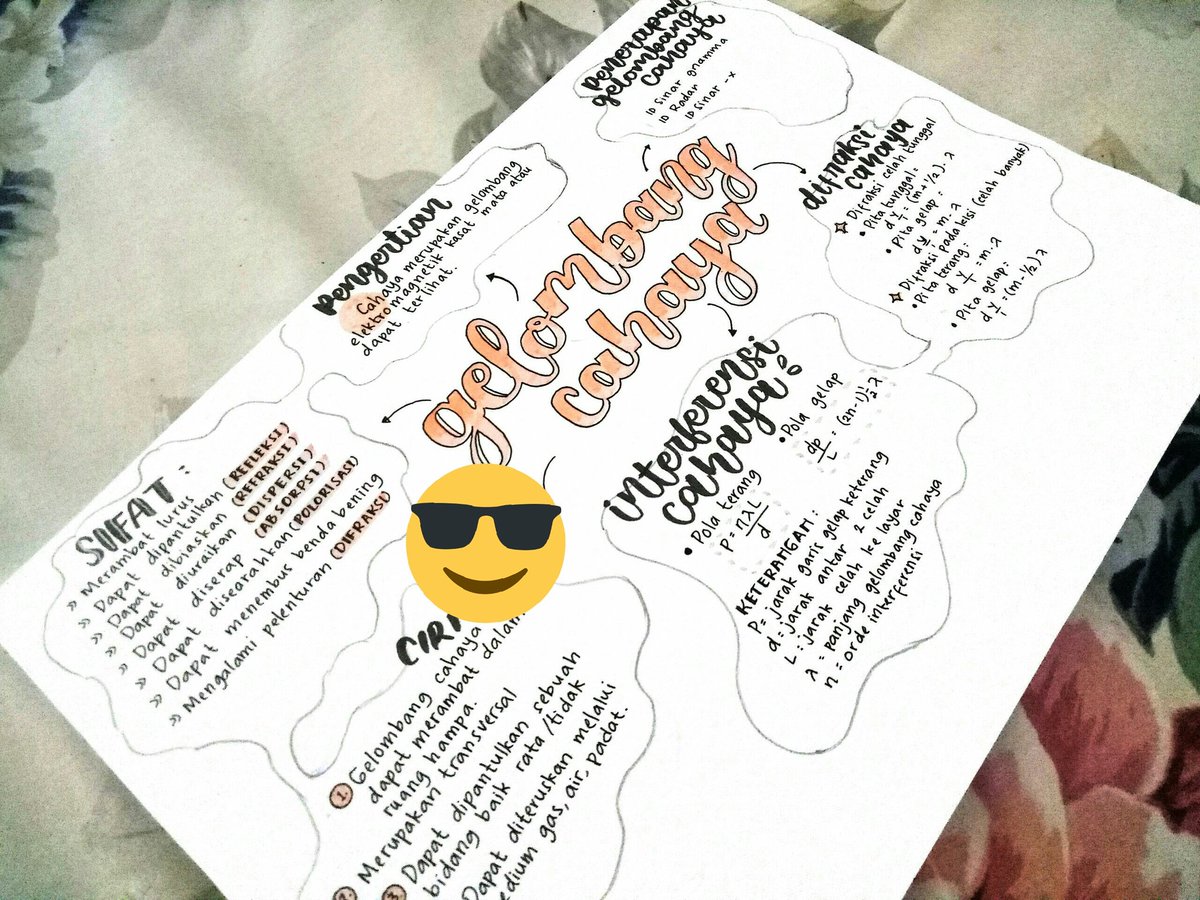 gelombang
cahaya
penerapan
gelombang
cahaya
Sinar gramma
Radar
Sinar -x
difraksi
cahaya
Difraksi celah tunggal
• Pita tunggal:
d Y/L = (m+1/2).λ
• Pita gelap:
d Y/L = m.λ
Difraksi pada kisi (celah banyak)
• Pita terang:
d Y/L = m.λ
• Pita gelap:
d Y/L = (m-1/2)λ
pengertian
Cahaya merupakan gelombang
elektromagnetik kasat mata atau
dapat terlihat.
interferensi
cahaya
• Pola terang
P = nλL/d
• Pola gelap
dp/L = (2n-1)½λ
KETERANGAN:
P = jarak garis gelap keterang
d = jarak antar 2 celah
L = jarak celah ke layar
λ = panjang gelombang cahaya
n = orde interferensi
SIFAT:
» Merambat lurus
» Dapat dipantulkan (REFLEKSI)
» Dapat dibiaskan (REFRAKSI)
» Dapat diuraikan (DISPERSI)
» Dapat diserap (ABSORPSI)
» Dapat disearahkan (POLORISASI)
» Dapat menembus benda bening
» Mengalami pelenturan (DIFRAKSI)
CIRI
1. Gelombang cahaya
dapat merambat dalam
ruang hampa.
2. Merupakan transversal
3. Dapat dipantulkan sebuah
bidang baik rata/tidak
Dapat diteruskan melalui
medium gas, air, padat.